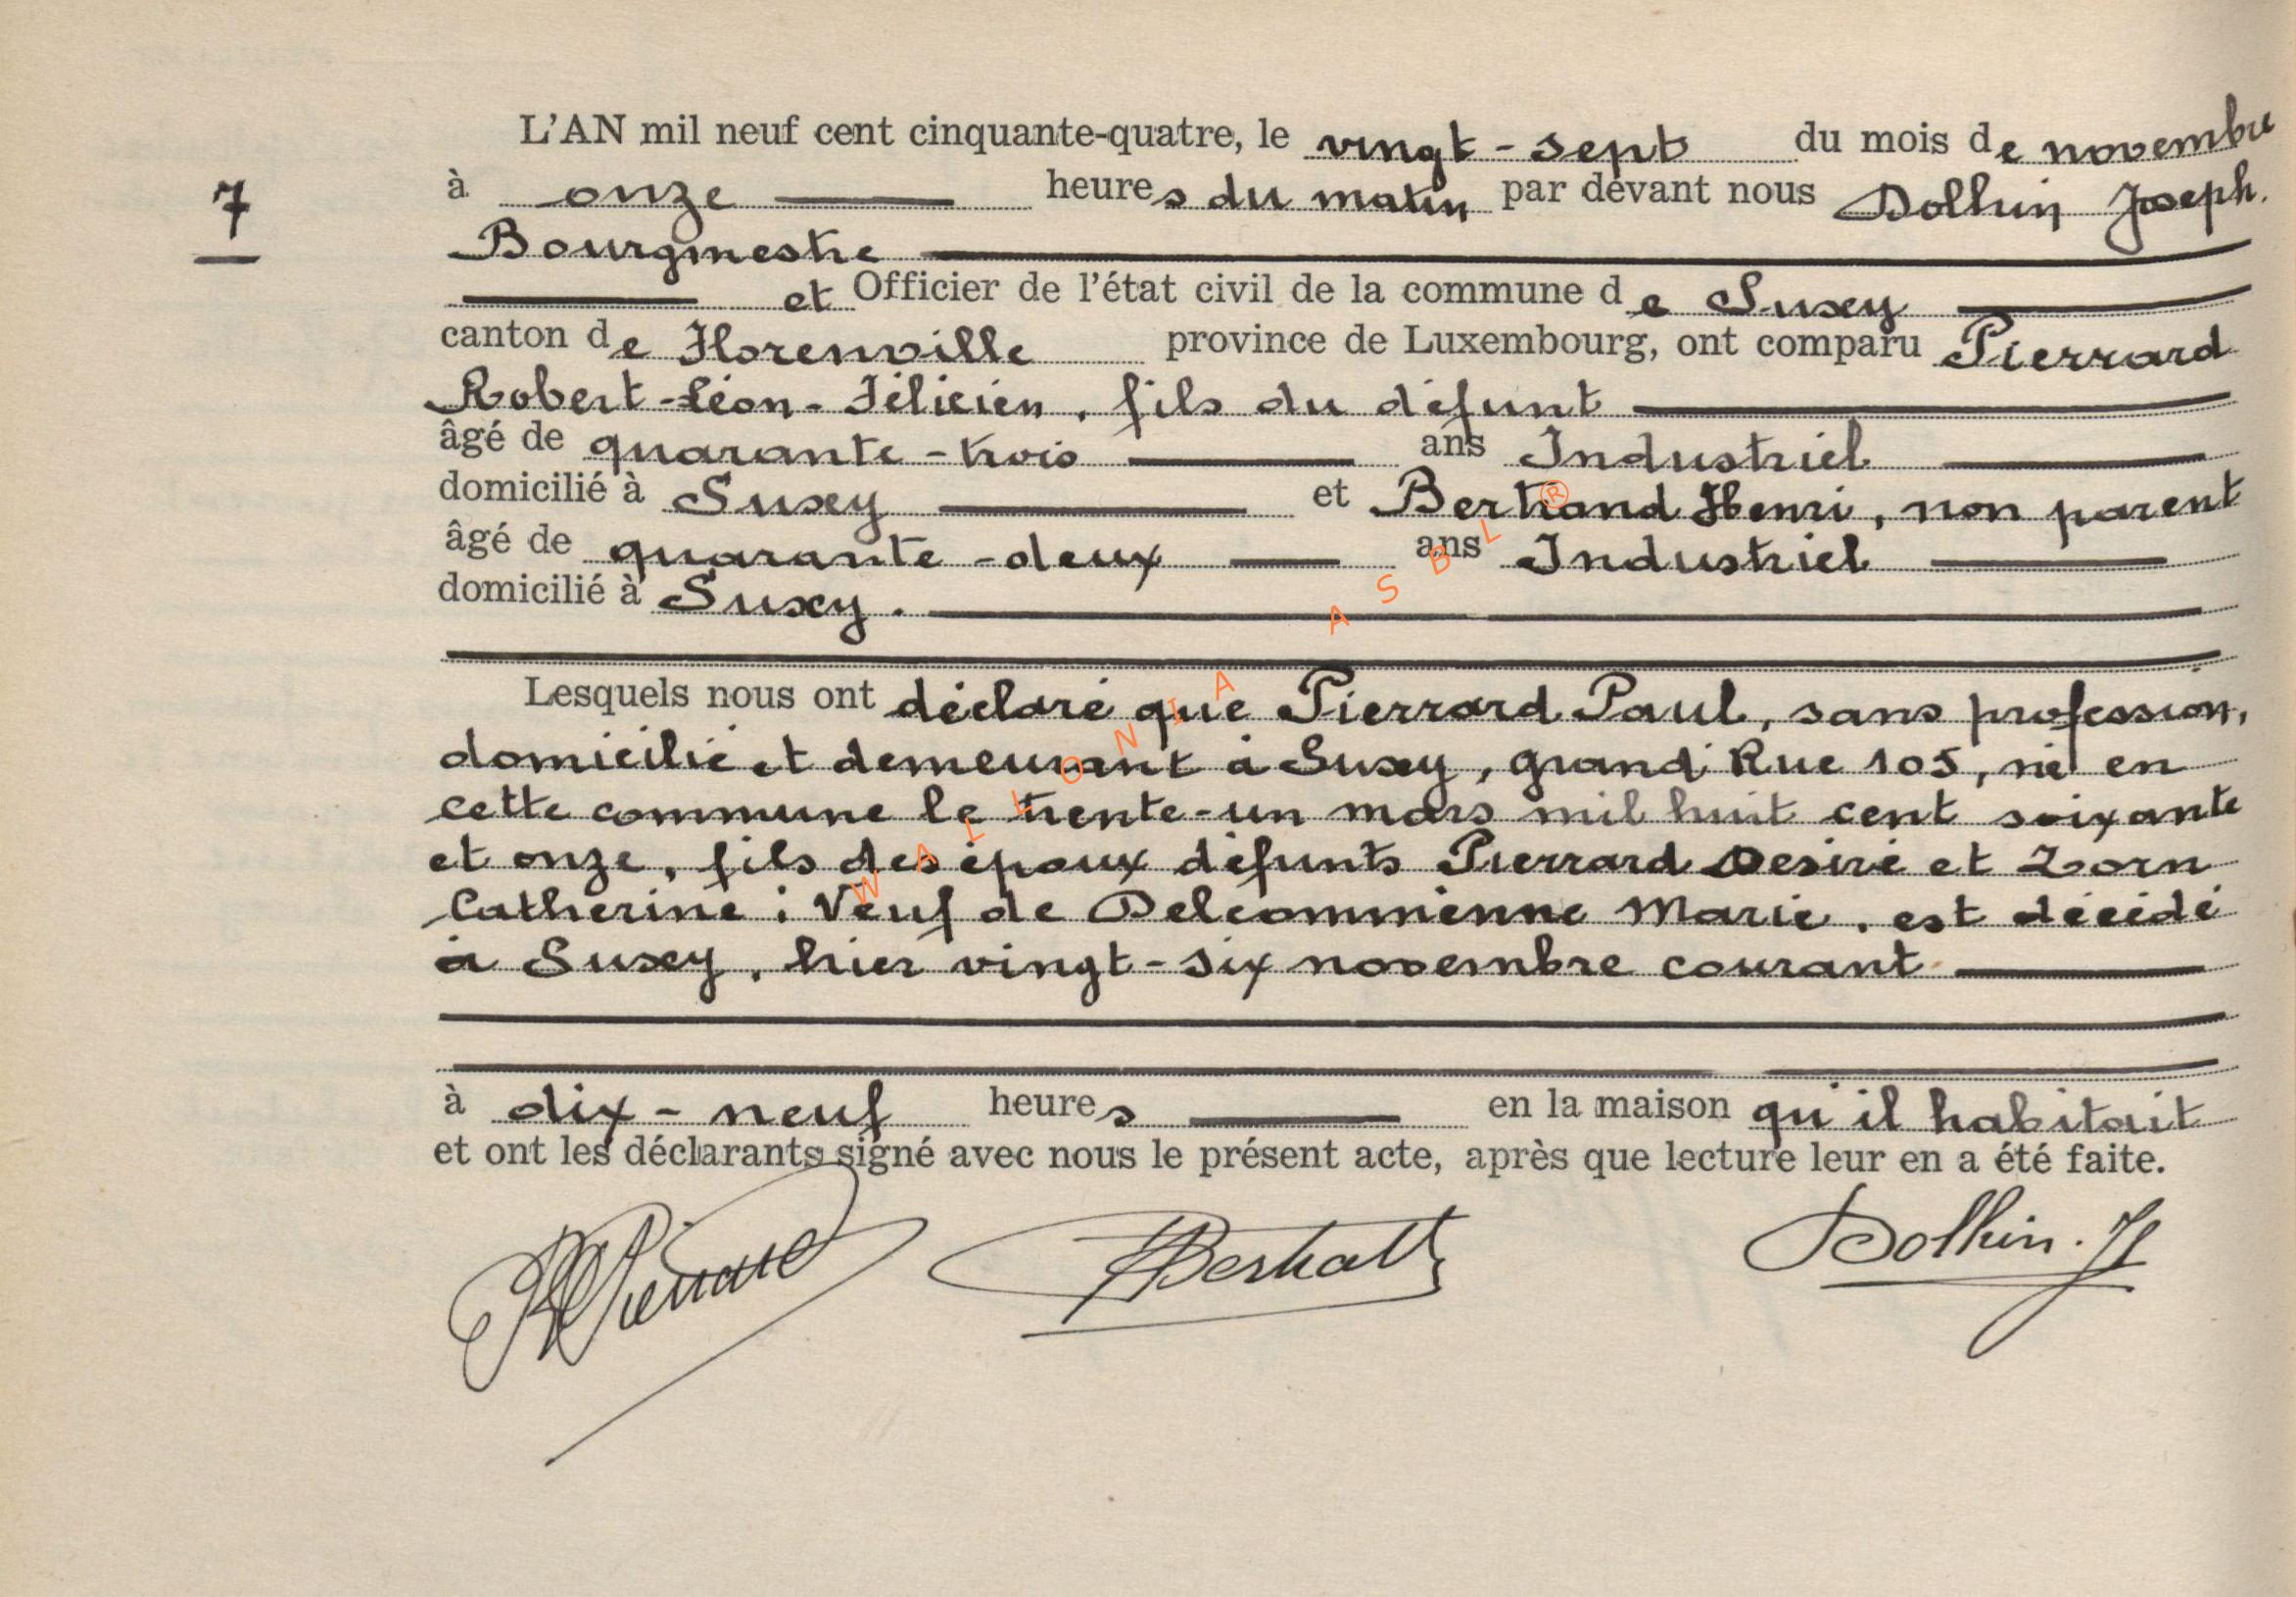 L'AN mil neuf cent cinquante-quatre, le vingt-sept du mois de novembre
7
à onze heures du matin par devant nous Dolhin Joseph.
Bourgmestre
et Officier de l'état civil de la commune de Suxy
canton de Florenville province de Luxembourg, ont comparu Pierrard
Robert-Léon-Félicien, fils du défunt
âgé de quarante-trois ans Industriel
domicilié à Suxy et Bertrand Henri, non parent
âgé de quarante-deux ans Industriel
domicilié à Suxy.
Lesquels nous ont déclaré que Pierrard Paul, sans profession,
domicilié et demeurant à Suxy, grand'Rue 105, né en
cette commune le trente-un mars mil huit cent soixante
et onze, fils des époux défunts Pierrard Désiré et Zorn
Catherine; Veuf de Delcommienne Marie, est décédé
à Suxy, hier vingt-six novembre courant
à dix-neuf heures en la maison qu'il habitait
et ont les déclarants signé avec nous le présent acte, après que lecture leur en a été faite.
Dolhin. J
WALLONIA ASBL ®